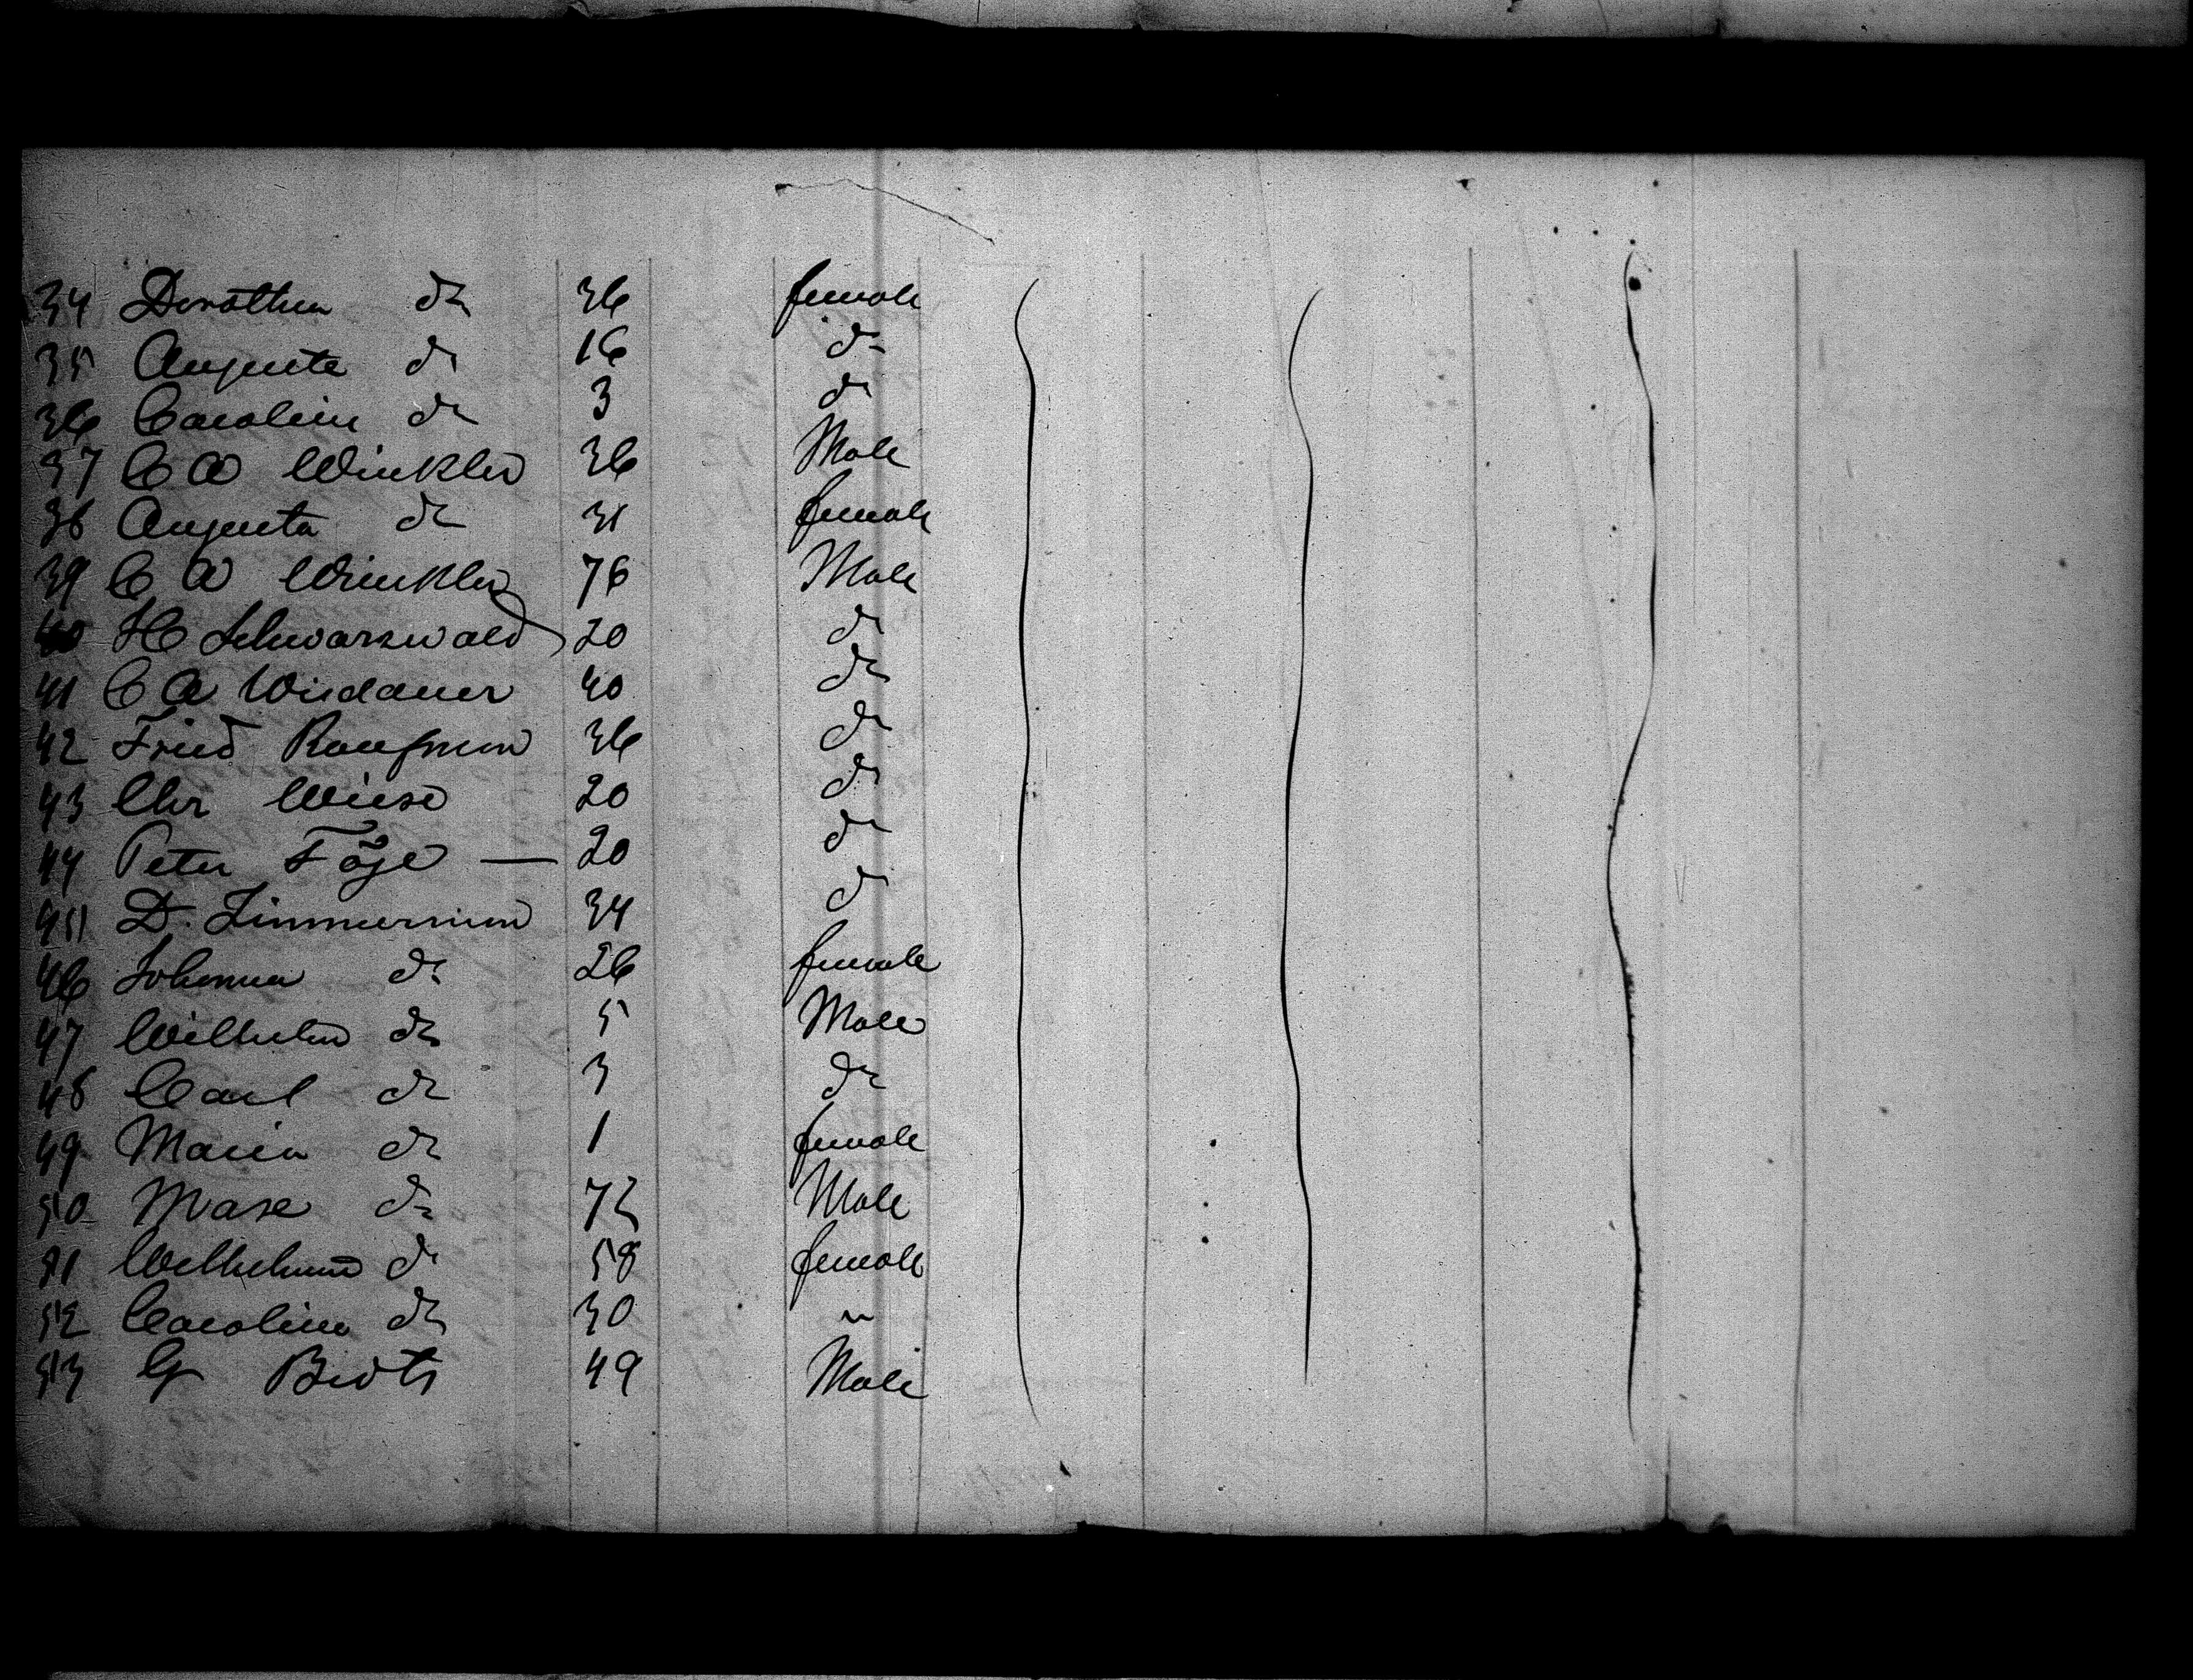 34 Dorothea do 36 female
35 Auguste do 16 do
36 Carolin do 3 do
37 C W Winkler 36 Male
38 Augusta do 31 female
39 C W Winkler 76 Male
40 H Schwarzwald 20 do
41 C A Wiedauer 40 do
42 Fried Kaufmann 36 do
43 Chr Wiese 20 do
44 Peter Föge — 20 do
45 D. Zimmermann 34 do
46 Johanna do 26 female
47 Wilhelm do 5 Male
48 Carl do 3 do
49 Maria do 1 female
50 do 72 Male
51 do 58 female
52 Carolina do 30 "
53 G 49 Male